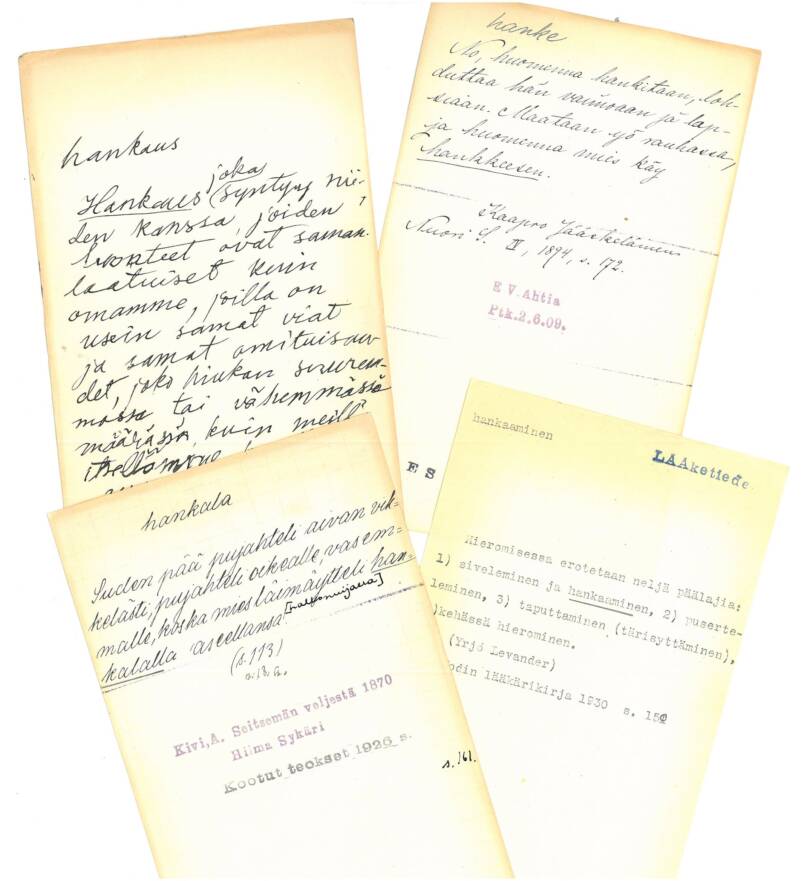 hankaus
joka
Hankaus syntyy nii-
den kanssa, joiden
luonteet ovat saman-
laatuiset kuin
omamme, joilla on
usein samat viat
ja samat omituisuu-
det, joko hiukan suurem-
massa tai vähemmässä
määrässä, kuin meillä
itsellämme
hanke
No, huomenna hankitaan, loh-
duttaa hän vaimoaan ja lap-
siaan. Maataan yö rauhassa,
ja huomenna mies käy
hankkeesen.
Kaapro Jääskeläinen
Nuori S. II, 1894, s. 172.
E V.Ahtia
Ptk.2.6.09.
ES
hankala
Suden pää pujahteli aivan vik-
kelästi, pujahteli oikealle, vasem-
malle, koska mies läimäytteli han-
[halkonuijalla]
kalalla aseellansa.
(s. 113)
Kivi,A. Seitsemän veljestä 1870
Hilma Sykäri
Kootut teokset 1926 s.
s. 161.
hankaaminen
LÄÄketiede
Hieromisessa erotetaan neljä päälajia:
1) siveleminen ja hankaaminen, 2) puserte-
leminen, 3) taputtaminen (tärisyttäminen),
)kehässä hierominen.
(Yrjö Levander)
odin lääkärikirja 1930 s. 15